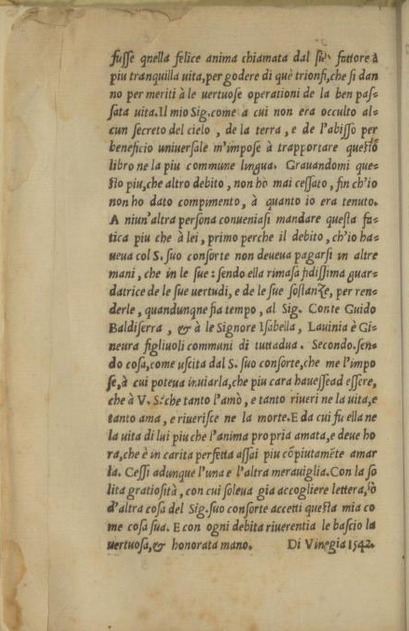 fusse quella felice anima chiamata dal suo fattore à
piu tranquilla uita, per godere di què trionfi, che si dan
no per meriti à le uertuose operationi de la ben pas-
sata uita. Il mio Sig. come a cui non era occulto al-
cun secreto del cielo, de la terra, e de l'abisso per
beneficio uniuersale m'impose à trapportare questo
libro ne la piu commune lingua. Grauandomi que-
sto piu, che altro debito, non hò mai cessato, fin ch'io
non ho dato compimento, à quanto io era tenuto.
A niun'altra persona conueniasi mandare questa fa-
tica piu che à lei, primo perche il debito, ch'io ha-
ueua col S. suo consorte non deueua pagarsi in altre
mani, che in le sue: sendo ella rimasa fidissima guar-
datrice de le sue uertudi, e de le sue sostanze, per ren-
derle, quandunque fia tempo, al Sig. Conte Guido
Baldiserra, & à le Signore Isabella, Lauinia è Gi-
neura figliuoli communi di tuttadua. Secondo. sen-
do cosa, come uscita dal S. suo consorte, che me l'impo
se, à cui poteua inuiarla, che piu cara hauesse ad essere,
che à V. S. che tanto l'amò, e tanto riueri ne la uita, e
tanto ama, e riuerisce ne la morte. E da cui fu ella ne
la uita di lui piu che l'anima propria amata, e deue ho
ra, che è in carita perfetta assai piu cõpiutamẽte amar
la. Cessi adunque l'una e l'altra merauiglia. Con la so
lita gratiosità, con cui soleua gia accogliere lettera, ò
d'altra cosa del Sig. suo consorte accetti questa mia co
me cosa sua. E con ogni debita riuerentia le bascio la
uertuosa, & honorata mano. Di Vinegia 1542.